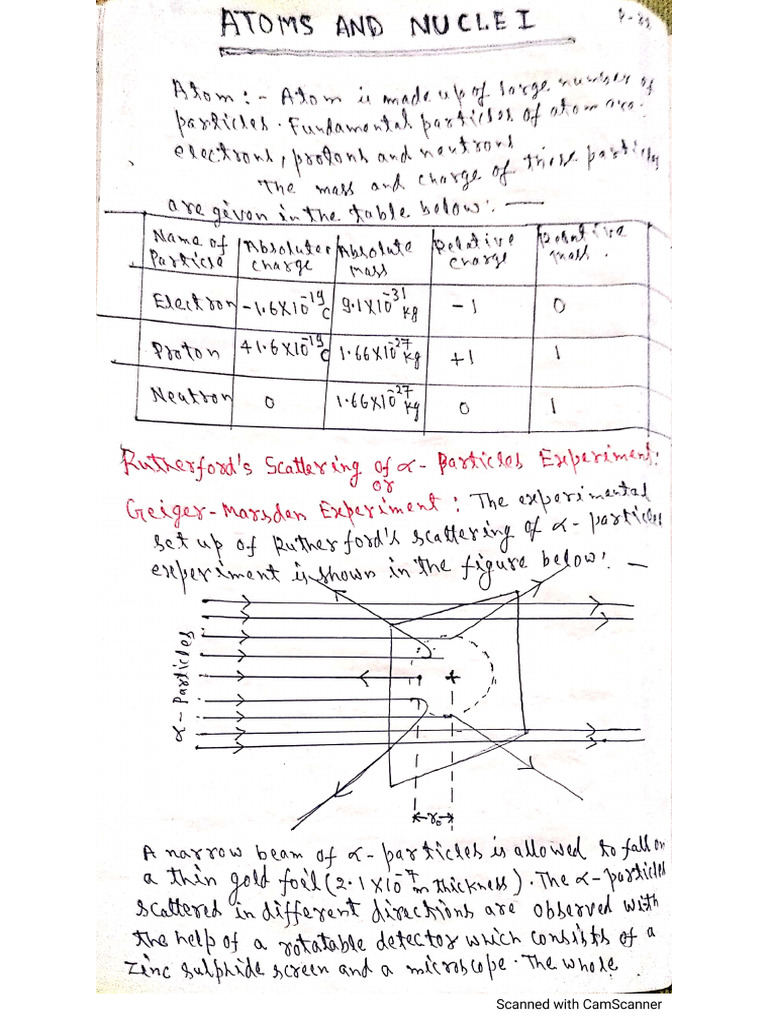 ATOMS AND NUCLEI
Atom :- Atom is made up of large number of
particles. Fundamental particles of atom are.
electrons, protons and neutrons
The mass and charge of these particles
are given in the table below: —
Name of Particle | Absolute charge | Absolute mass | Relative charge | Relative mass.
Electron | -1.6X10⁻¹⁹C | 9.1X10⁻³¹kg | -1 | 0
Proton | +1.6X10⁻¹⁹C | 1.66X10⁻²⁷kg | +1 | 1
Neutron | 0 | 1.66X10⁻²⁷kg | 0 | 1
Rutherford's Scattering of α- Particles Experiment:
or
Geiger-Marsden Experiment : The experimental
set up of Rutherford's scattering of α- particles
experiment is shown in the figure below: —
α- Particles
+
r₀
A narrow beam of α- particles is allowed to fall on
a thin gold foil (2.1X10⁻⁷m thickness). The α-particles
scattered in different directions are observed with
the help of a rotatable detector which consists of a
zinc sulphide screen and a microscope. The whole
Scanned with CamScanner